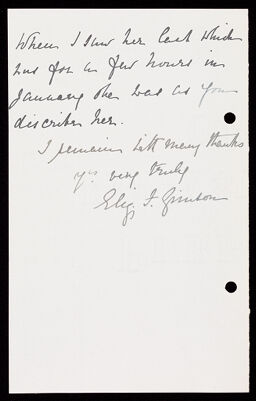 When I saw her last which
was for a few hours in
January she was as you
discribe her.
I remain with many thanks
yrs very truly
Eliz. F.